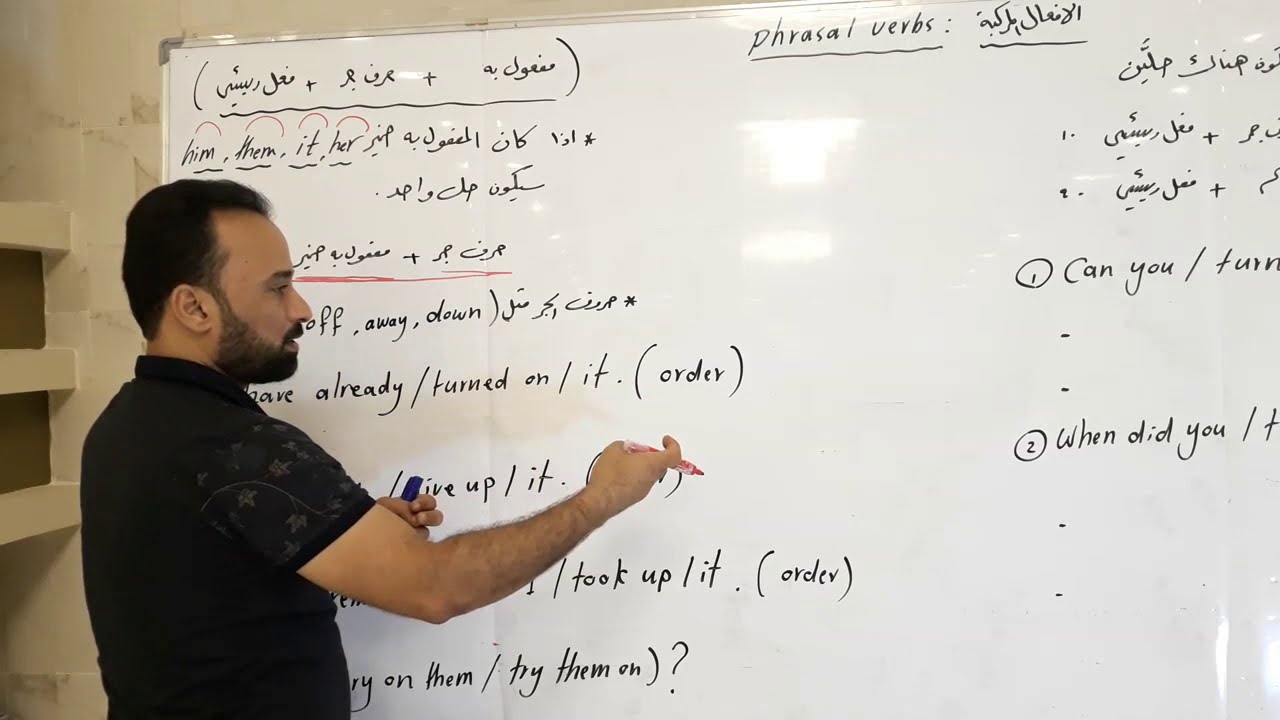 phrasal verbs : الافعال المركبة
( فعل رئيسي + حرف جر + مفعول به )
* اذا كان المفعول به ضمير him , them , it , her
سيكون حل واحد .
حرف جر + مفعول به ضمير
* حروف الجر مثل ( off , away , down
have already / turned on / it . ( order )
/ give up / it .
/ took up / it . ( order )
ry on them / try them on ) ?
هناك حلّين
.1 فعل رئيسي + جر
.2 فعل رئيسي +
① Can you / turn
-
-
② When did you / t
-
-